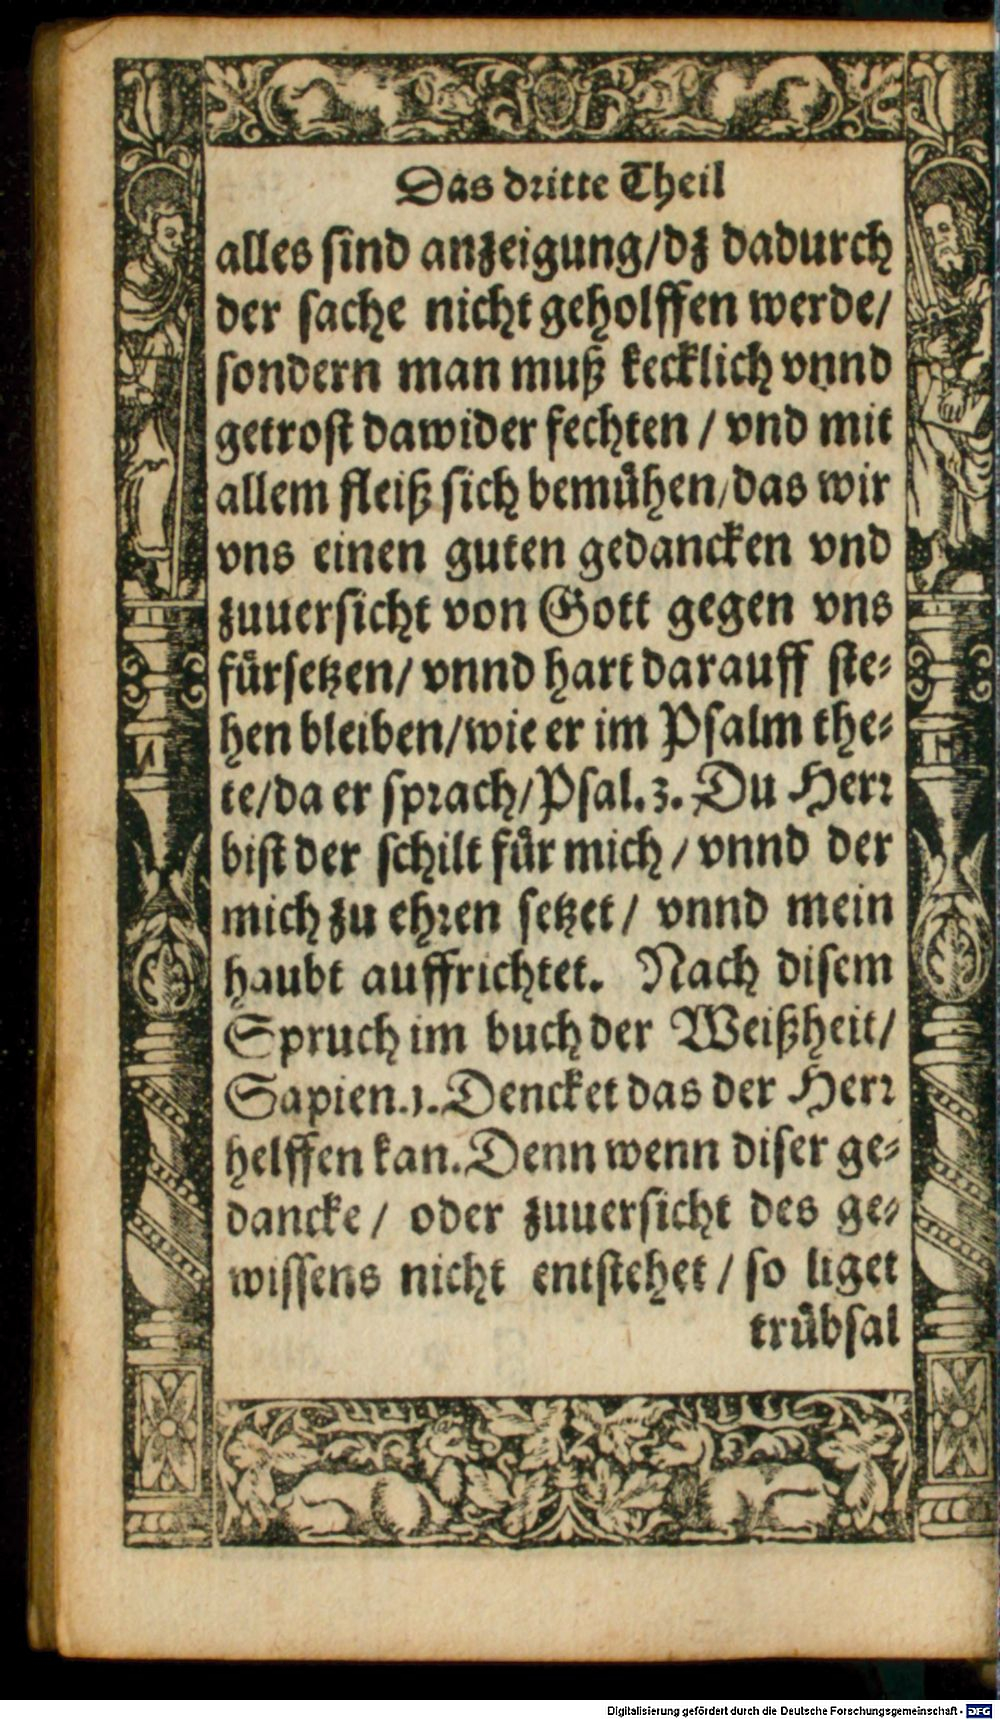 Das dritte Theil
alles sind anzeigung/dz dadurch
der sache nicht geholffen werde/
sondern man muß kecklich vnnd
getrost dawider fechten / vnd mit
allem fleiß sich bemühen/das wir
vns einen guten gedancken vnd
zuuersicht von Gott gegen vns
fürsetzen/ vnnd hart darauff ste⸗
hen bleiben/wie er im Psalm the⸗
te/da er sprach/Psal.3. Du Herr
bist der schilt für mich / vnnd der
mich zu ehren setzet / vnnd mein
haubt auffrichtet. Nach disem
Spruch im buch der Weißheit/
Sapien.1. Dencket das der Herr
helffen kan. Denn wenn diser ge⸗
dancke / oder zuuersicht des ge⸗
wissens nicht entstehet / so liget
trübsal
Digitalisierung gefördert durch die Deutsche Forschungsgemeinschaft - DFG